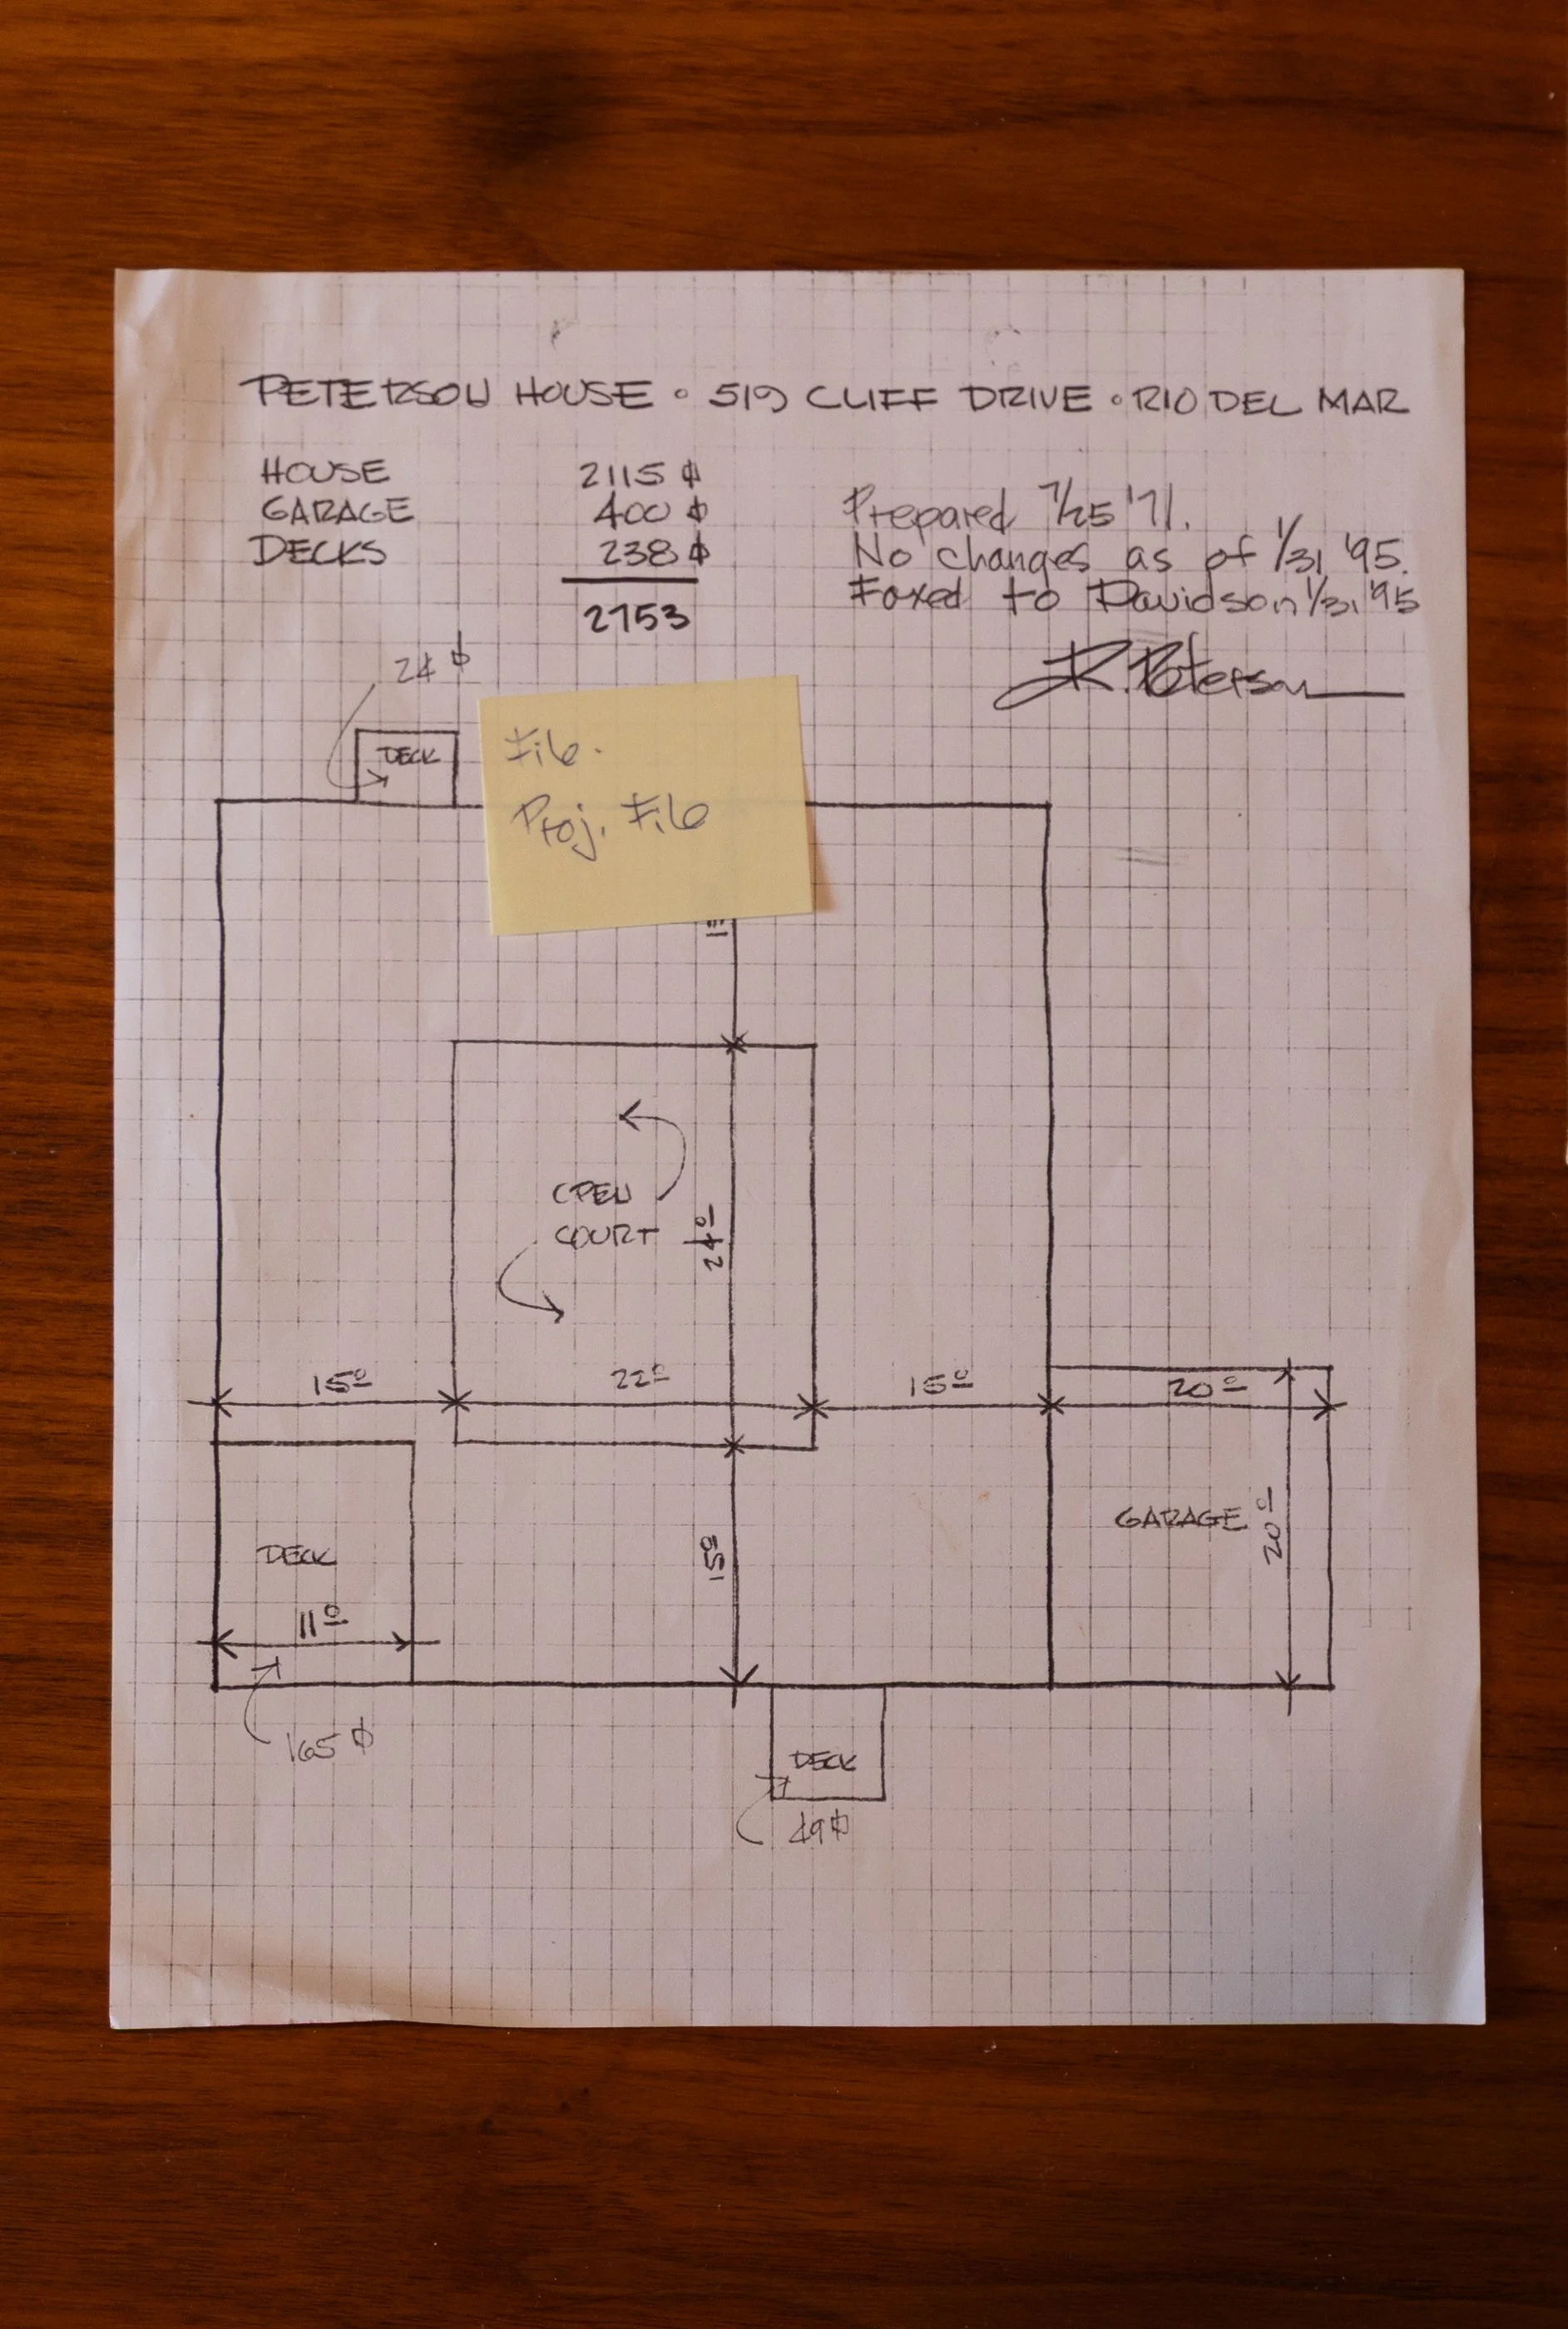 PETERSON HOUSE • 519 CLIFF DRIVE • RIO DEL MAR
HOUSE 2115 ⌀
GARAGE 400 ⌀
DECKS 238 ⌀
2753
Prepared 7/25 '71.
No changes as of 1/31 '95.
Faxed to Davidson 1/31 '95
R. Peterson
24 ⌀
DECK
File.
Proj. File
OPEN
COURT
24⁰
15⁰
22⁰
15⁰
20⁰
GARAGE
20⁰
DECK
15⁰
11⁰
165 ⌀
DECK
49 ⌀